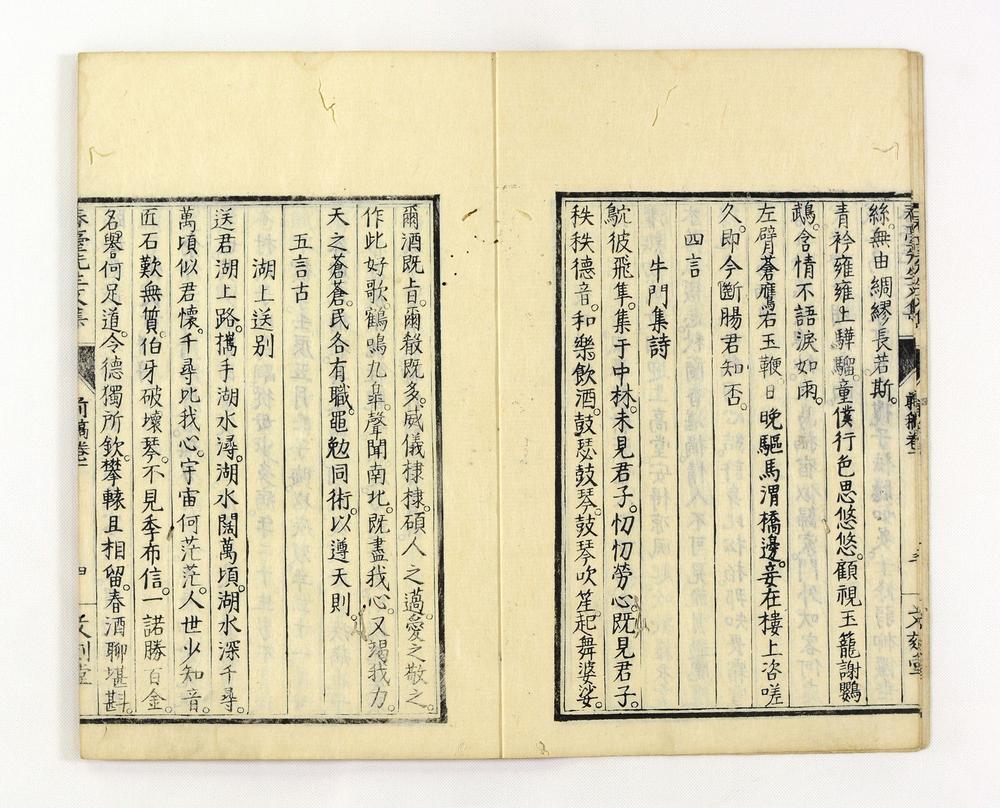 絲。無由綢繆長若斯。
青衿雍雍上驊騮。童僕行色思悠悠。顧視玉籠謝鸚
鵡。含情不語淚如雨。
左臂蒼鷹右玉鞭。日晚驅馬渭橋邊。妾在樓上咨嗟
久。即今斷腸君知否。
四言
牛門集詩
鴥彼飛隼。集于中林。未見君子。忉忉勞心。既見君子。
秩秩德音。和樂飲酒。鼓瑟鼓琴。鼓琴吹笙。起舞婆娑。
爾酒既旨。爾殽既多。威儀棣棣。碩人之邁。愛之敬之。
作此好歌。鶴鳴九皐。聲聞南北。既盡我心。又竭我力。
天之蒼蒼。民各有職。黽勉同術。以遵天則。
五言古
湖上送別
送君湖上路。携手湖水潯。湖水闊萬頃。湖水深千尋。
萬頃似君懷。千尋比我心。宇宙何茫茫。人世少知音。
匠石歎無質。伯牙破壞琴。不見季布信。一諾勝百金。
名譽何足道。令德獨所欽。攀轅且相留。春酒聊堪斟。
前稿卷一 四